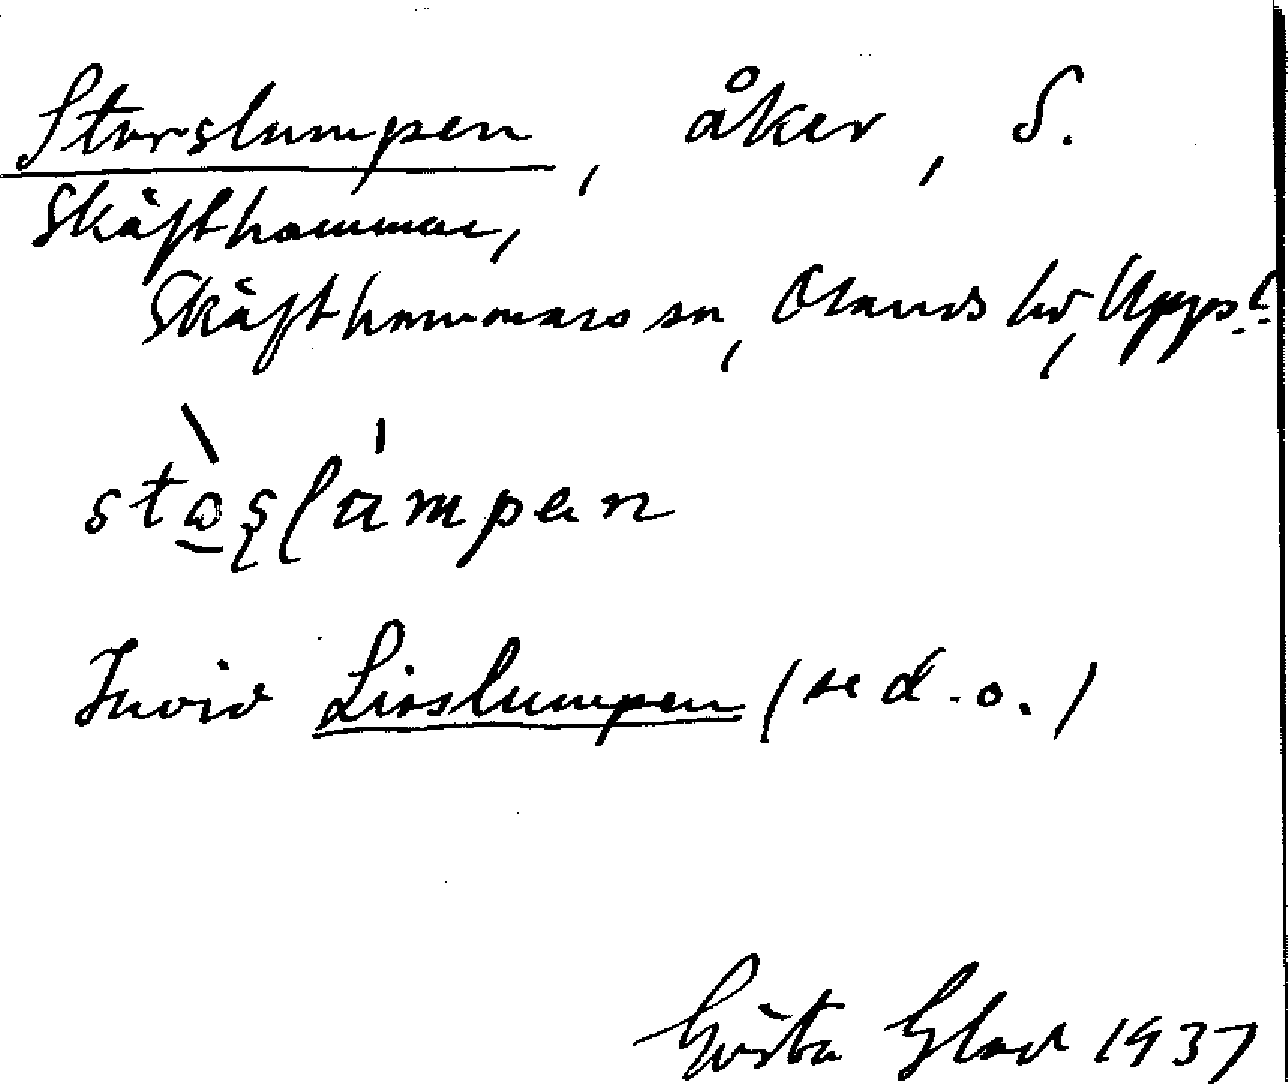 Storslumpen, åker, S.
Skäfthammar,
Skäfthammars sn, Olands hd, Upps.l.
stòslúmpen
Invid Lisslumpen (se d.o.)
Gösta Glad 1937